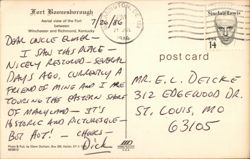 Fort Boonesborough
Aerial view of the Fort
between
Winchester and Richmond, Kentucky
7/26/86
DEAR UNCLE ELMER-
I SAW THIS PLACE -
NICELY RESTORED - SEVERAL
DAYS AGO, CURRENTLY A
FRIEND OF MINE AND I ARE
TOURING THE EASTERN SHORE
OF MARYLAND - IT'S
HISTORIC AND PICTURESQUE -
BUT HOT! - CHEERS -
Dick
Sinclair Lewis
14
post card
MR. E.L. DEICKE
312 EDGEWOOD DR.
ST. LOUIS, MO
63105